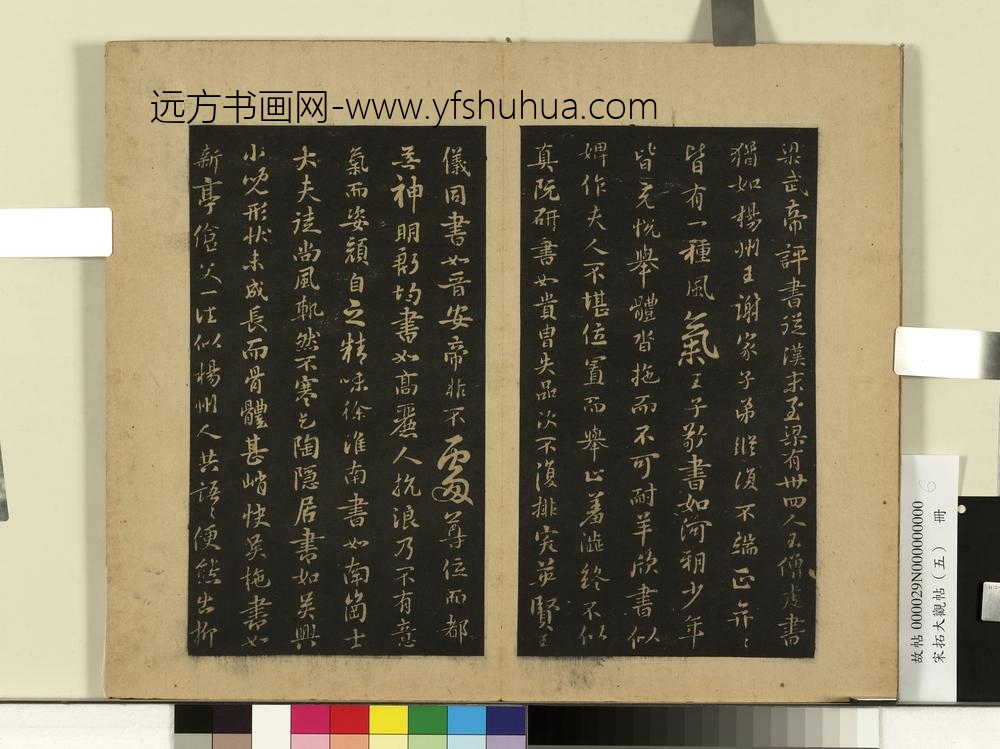 远方书画网-www.yfshuhua.com
梁武帝評書從漢末至梁有卅四人王僧虔書
猶如楊州王謝家子弟縱復不端正奕〻
皆有一種風氣王子敬書如河朔少年
皆充悅舉體沓拖而不可耐羊欣書似
婢作夫人不堪位置而舉止羞澀終不似
真阮研書如貴胄失品次不復排突英賢王
儀同書如晉安帝非不處尊位而都
無神明庾肩吾書
均書如高麗人抗浪乃不有意
氣而姿顏自之精味徐淮南書如南岡士
大夫徒尚風軌然不寒乞陶隱居書如吳興
小兒形狀未成長而骨體甚峭快吳施書如
新亭傖父一往似楊州人共語〻便態出柳
故帖000029N000000000
宋拓大觀帖（五） 冊
6